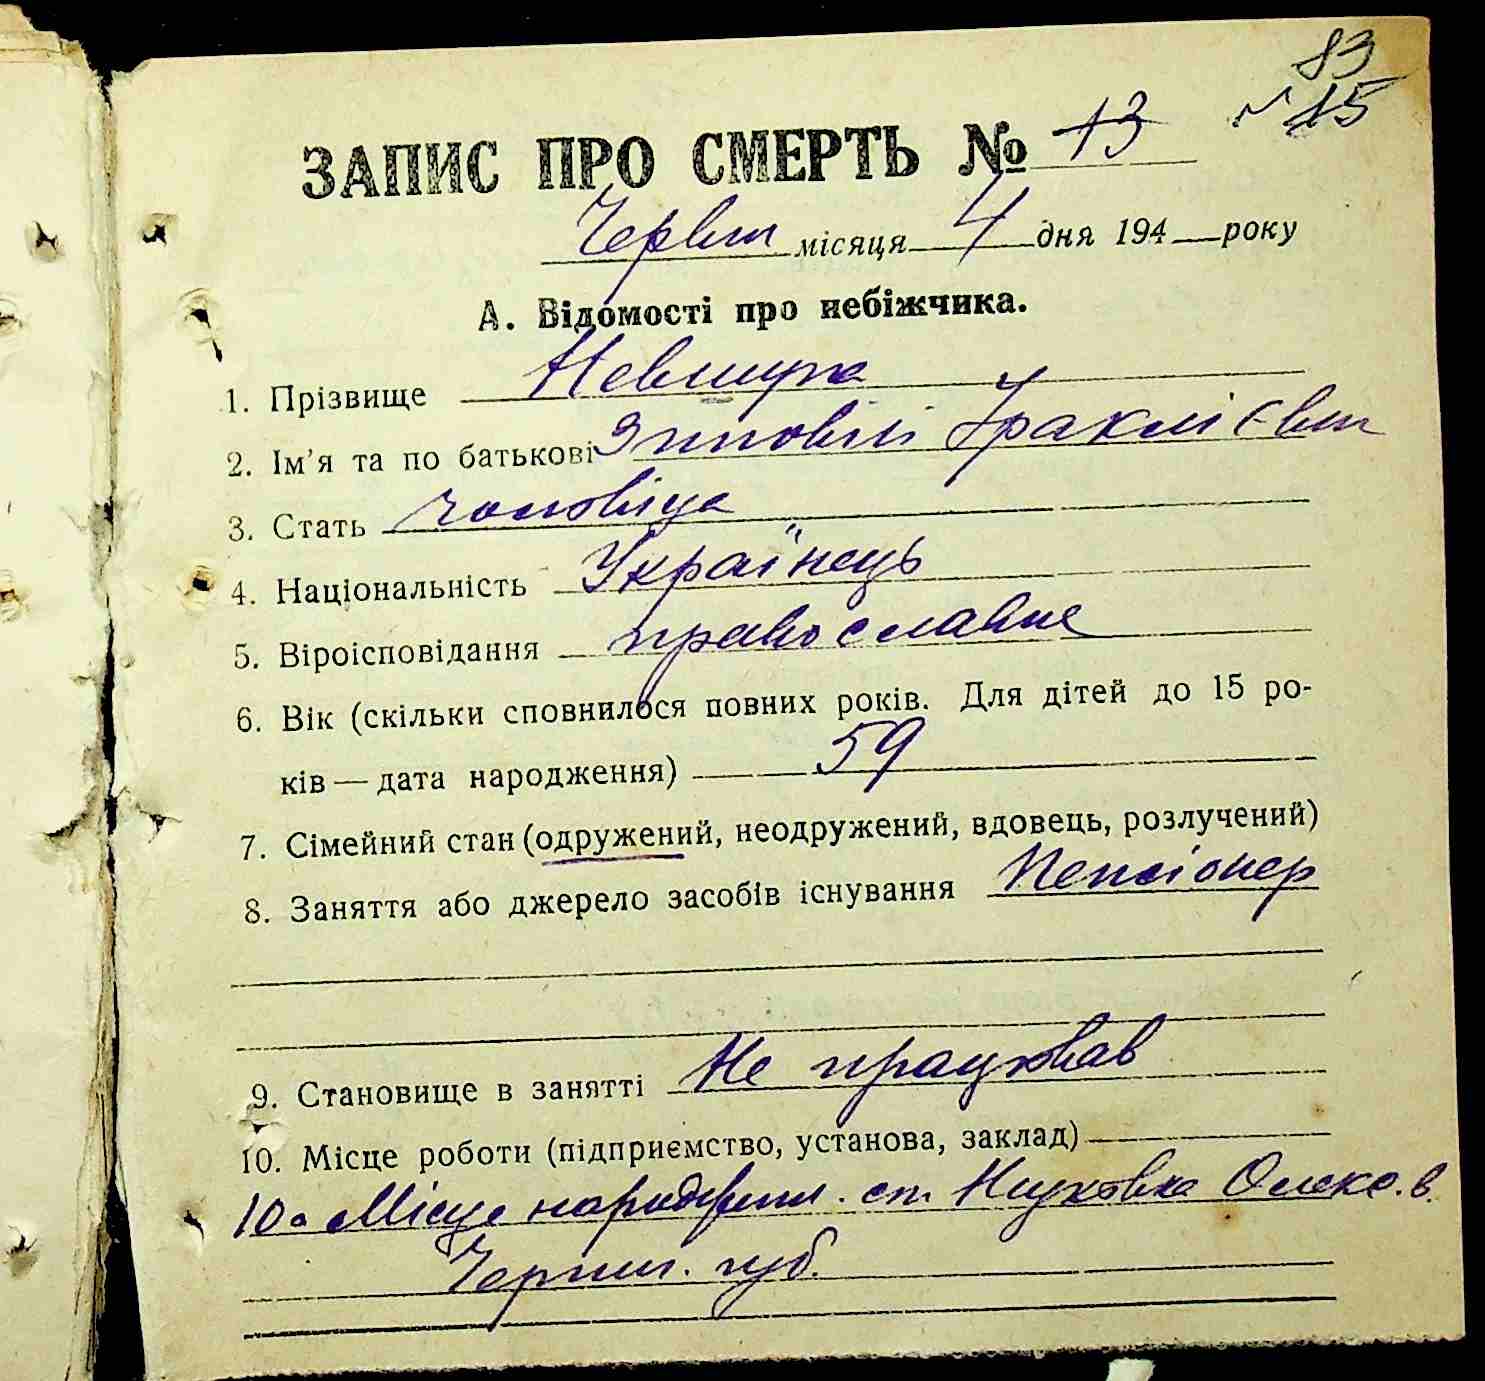 83
ЗАПИС ПРО СМЕРТЬ № 13 № 15
Червня місяця 4 дня 194 року
А. Відомості про небіжчика.
1. Прізвище
2. Ім'я та по батькові Зіновій Іраклієвич
3. Стать чоловіча
4. Національність Українець
5. Віроісповідання православне
6. Вік (скільки сповнилося повних років. Для дітей до 15 ро-
ків — дата народження) 59
7. Сімейний стан (одружений, неодружений, вдовець, розлучений)
8. Заняття або джерело засобів існування Пенсіонер
9. Становище в занятті Не працював
10. Місце роботи (підприємство, установа, заклад)
10а Місце народження. ст. Олекс. в.
Черниг. губ.